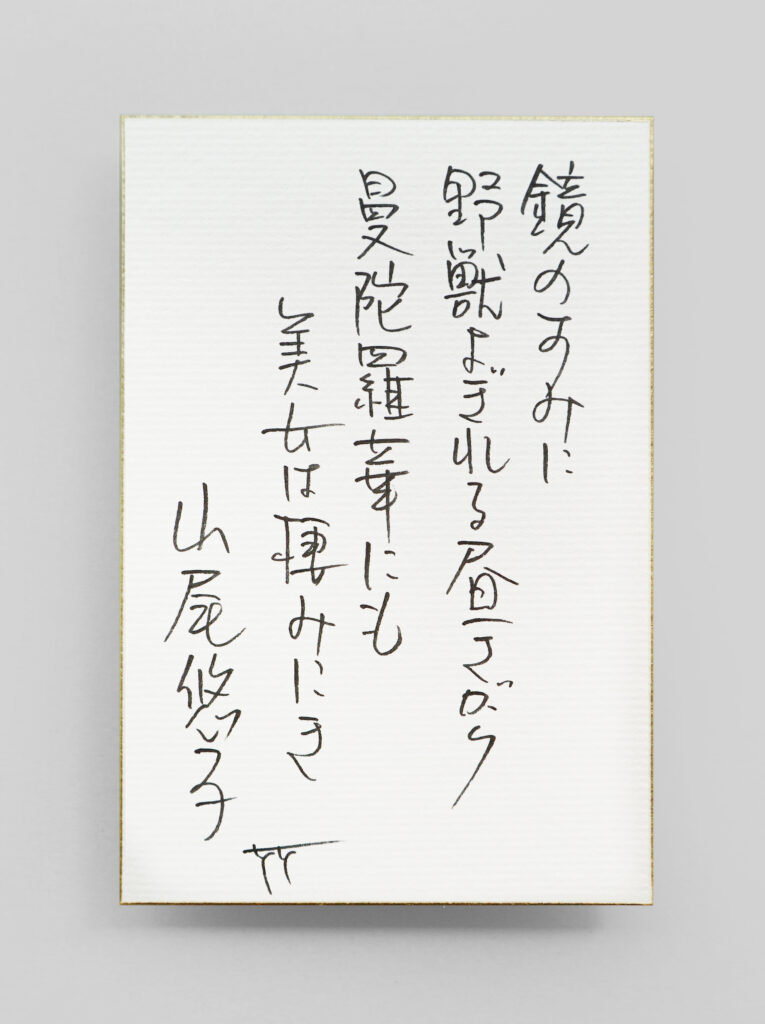 鏡のすみに
野獣よぎれる昼さがり
曼陀羅華にも
美女は棲みにき
山尾悠子